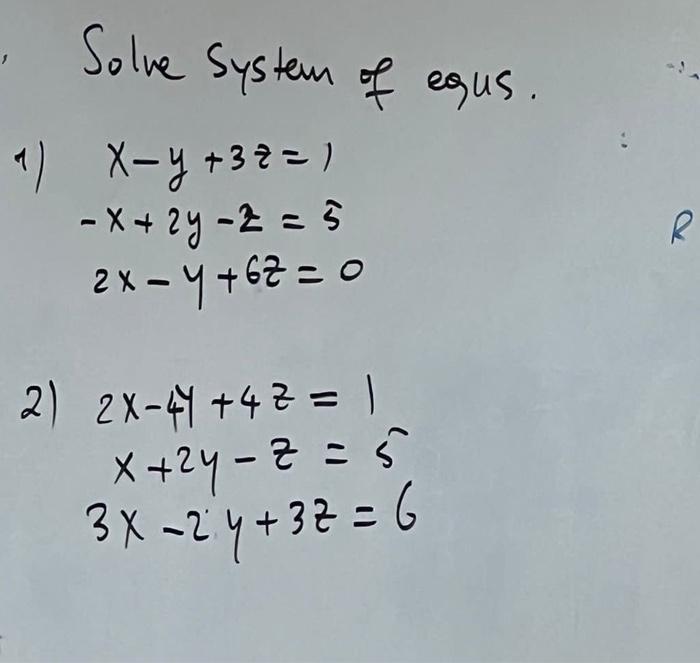 Solve System of equs.
1) x - y + 3z = 1
-x + 2y - z = 5
2x - y + 6z = 0
R
2) 2x - 4y + 4z = 1
x + 2y - z = 5
3x - 2y + 3z = 6